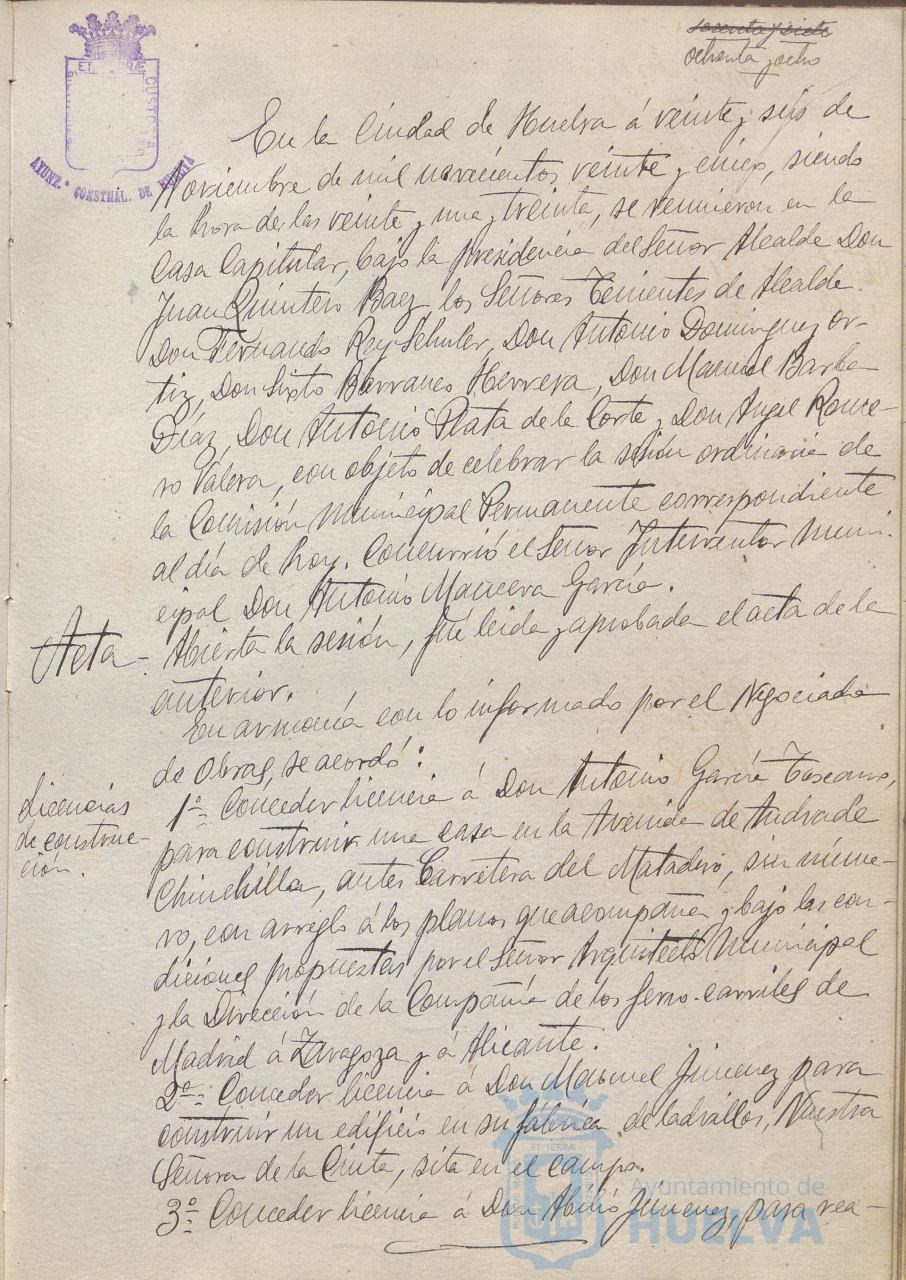 setenta y siete
ochenta y ocho
AYUNT.º CONSTNAL. DE HUELVA
En la Ciudad de Huelva á veinte y seis de
Noviembre de mil novecientos veinte y cinco, siendo
la hora de las veinte y una y treinta, se reunieron en la
Casa Capitular, bajo la presidencia del Señor Alcalde Don
Juan Quintero Baez los Señores Tenientes de Alcalde
Don Fernando Rey Schuler, Don Antonio Dominguez Or-
tiz, Don Sixto Barranco Herrera, Don Manuel Barba
Díaz, Don Antonio Plata de la Corte y Don Angel Ronce-
ro Valera, con objeto de celebrar la sesión ordinaria de
la Comisión Municipal Permanente correspondiente
al día de hoy. Concurrió el Señor Interventor Muni-
cipal Don Antonio Maneva García.
Acta- Abierta la sesión, fué leida y aprobada el acta de la
anterior.
En armonía con lo informado por el Negociado
de Obras, se acordó:
Licencias
de construc-
ción.
1º- Conceder licencia á Don Antonio García Toscano,
para construir una casa en la Avenida de Andrade
Chinchilla, antes Carretera del Matadero, sin núme-
ro, con arreglo á los planos que acompaña y bajo las con-
diciones propuestas por el Señor Arquitecto Municipal
y la Dirección de la Compañía de los ferro-carriles de
Madrid á Zaragoza y á Alicante.
2º- Conceder licencia á Don Manuel Jimenez para
construir un edificio en su fábrica de ladrillos, Nuestra
Señora de la Cinta, sita en el campo.
3º- Conceder licencia á Don Abilio Jimenez, para rea-
Ayuntamiento de
HUELVA